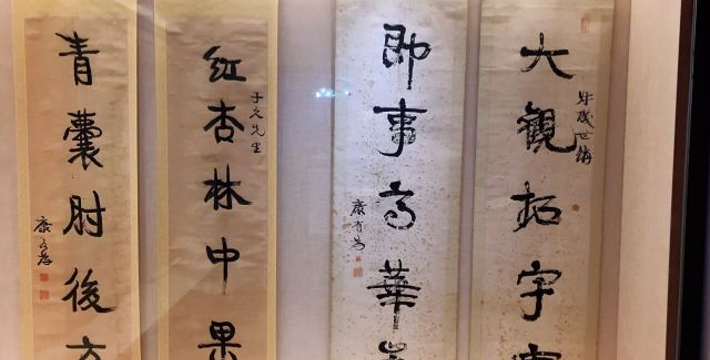 大觀拓宇
世講
即事高華
康有為
紅杏林中果
子久先生
青囊肘後方
康有為